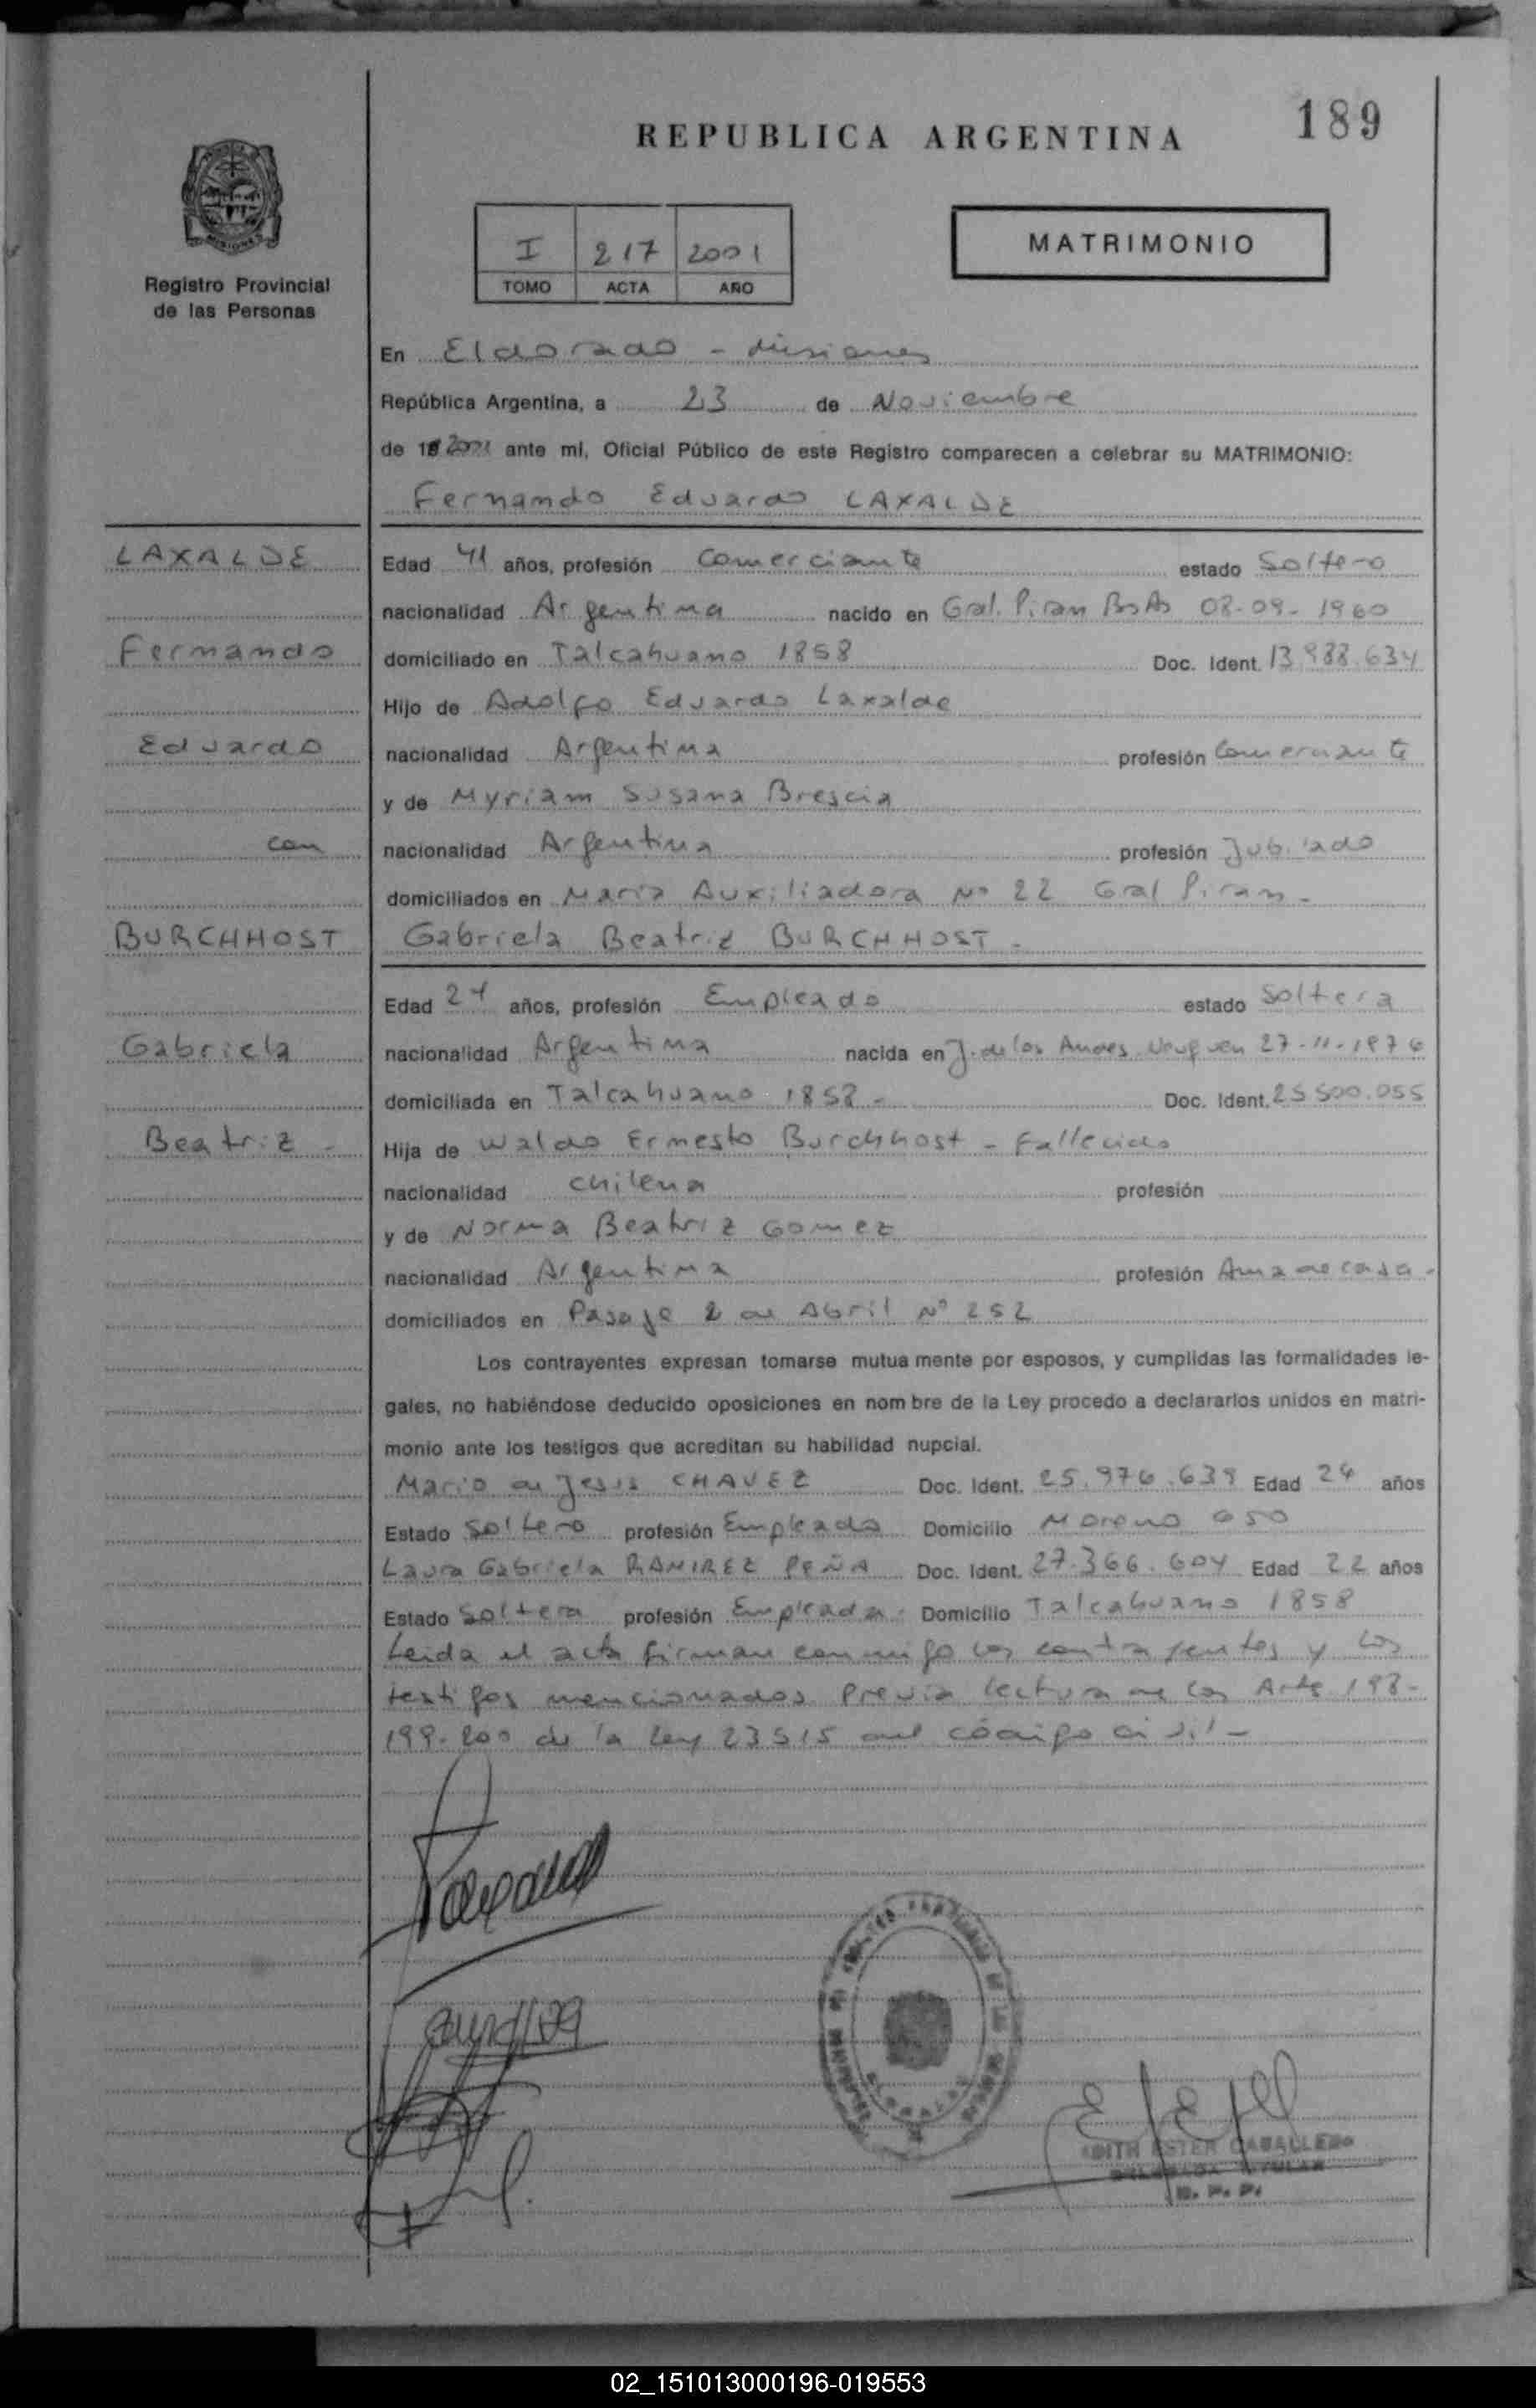 189
REPUBLICA ARGENTINA
MISIONES
Registro Provincial
de las Personas
I 217 2001
TOMO ACTA AÑO
MATRIMONIO
En Eldorado - Misiones
República Argentina, a 23 de Noviembre
de 2001 ante mi, Oficial Público de este Registro comparecen a celebrar su MATRIMONIO:
Fernando Eduardo LAXALDE
LAXALDE
Fernando
Eduardo
con
BURCHHOST
Gabriela
Beatriz -
Edad 41 años, profesión Comerciante estado Soltero
nacionalidad Argentina nacido en Gral. Piran Bs As 08-09-1960
domiciliado en Talcahuano 1858 Doc. Ident. 13.988.634
Hijo de Adolfo Eduardo Laxalde
nacionalidad Argentina profesión Comerciante
y de Myriam Susana Brescia
nacionalidad Argentina profesión Jubilado
domiciliados en Maria Auxiliadora Nº 22 Gral Piran -
Gabriela Beatriz BURCHHOST -
Edad 24 años, profesión Empleado estado Soltera
nacionalidad Argentina nacida en J. de los Andes Neuquen 27-11-1976
domiciliada en Talcahuano 1858 - Doc. Ident. 25.500.055
Hija de Waldo Ernesto Burchhost - Fallecido
nacionalidad chilena profesión
y de Norma Beatriz Gomez
nacionalidad Argentina profesión Ama de casa -
domiciliados en Pasaje 2 de Abril Nº 252
Los contrayentes expresan tomarse mutua mente por esposos, y cumplidas las formalidades le-
gales, no habiéndose deducido oposiciones en nom bre de la Ley procedo a declararlos unidos en matri-
monio ante los testigos que acreditan su habilidad nupcial.
Mario de Jesus CHAVEZ Doc. Ident. 25.976.639 Edad 24 años
Estado Soltero profesión Empleado Domicilio Moreno 650
Laura Gabriela RAMIREZ PEÑA Doc. Ident. 27.366.604 Edad 22 años
Estado Soltera profesión Empleada Domicilio Talcahuano 1858
Leida el acta firman conmigo los contrayentes y los
testigos mencionados previa lectura de los Arts 198-
199-200 de la Ley 23515 del código civil -
EDITH ESTER CABALLERO
DELEGADA TITULAR
R. P. P.
02_151013000196-019553